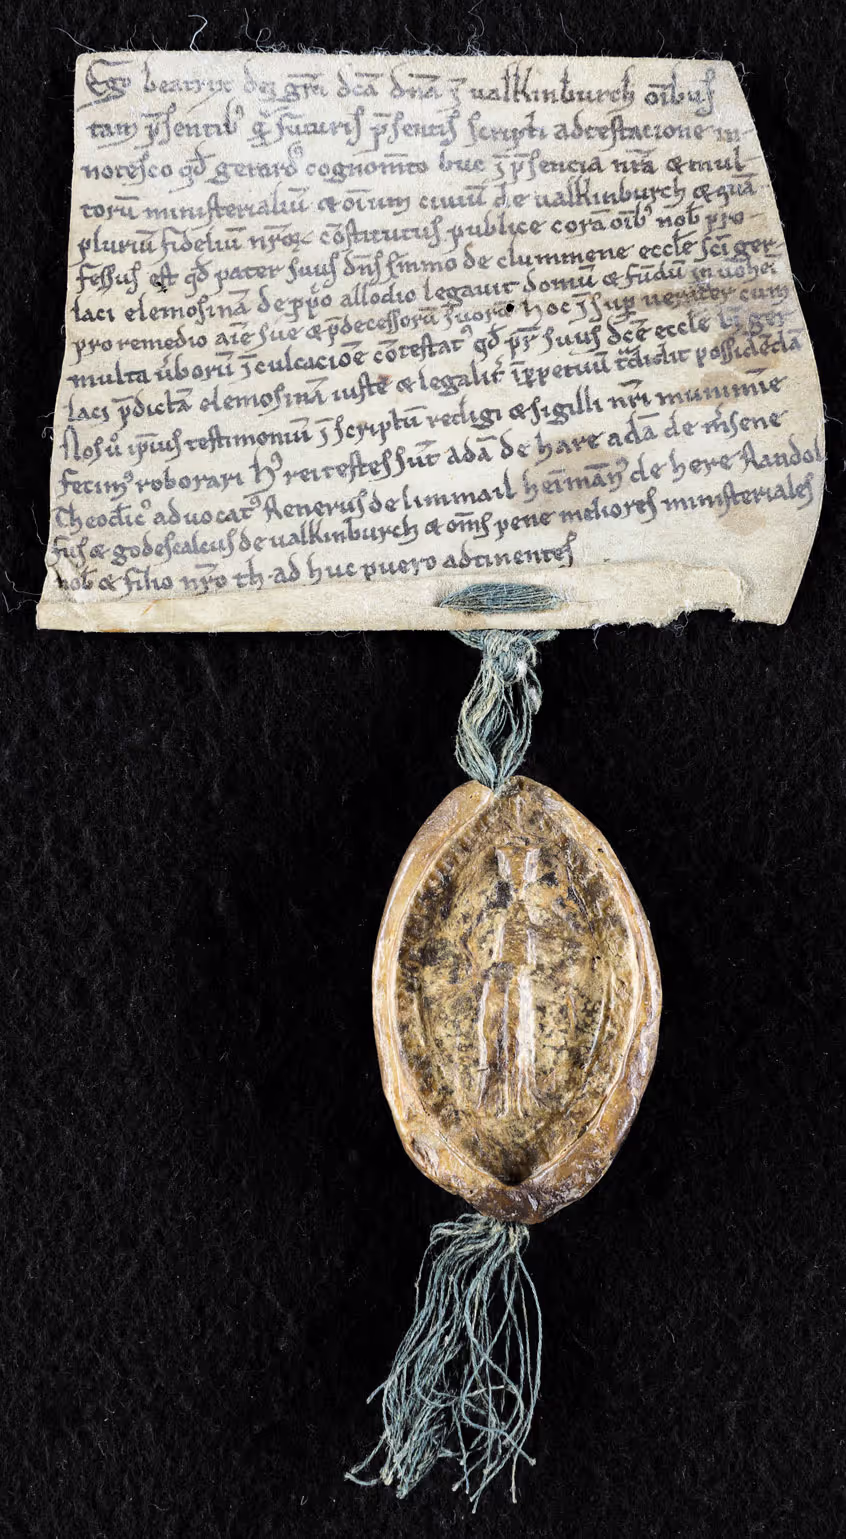 Ego beatrix dei gr̄a dc̄a dn̄a ī valkinburch oībus
tam p̄sentib⁹ q̄ futuris p̄sentis scripti adtestacione in-
notesco qd̄ gerard⁹ cognom̄to buc ī p̄sencia nr̄a & mul-
torū ministerialiū & oīum ciuiū de valkinburch & quā
pluriū fideliū nr̄oꝝ cōstitutus publice corā oīb⁹ nob̄ pro-
fessus est qd̄ pater suus dn̄s simmo de clummene eccl̄e sc̄i ger-
laci elemosinā de pp̄o allodio legauit domū & fūdū in
pro remedio aīe sue & p̄decessorū suorū hoc īsup cum
multa ūborū īculcacioē cōtestat⁹ qd̄ pr̄ suus dc̄e eccl̄e ger
laci p̄dictā elemosinā iuste & legalit̄ īppetuū t̄didit possidēdā
Nos ū ipīus testimoniū ī scriptū redigi & sigilli nr̄i munimīe
fecim⁹ roborari h⁹ rei testes sūt adā de hare adā de
Theod̄ic⁹ aduocat⁹ Renerus de limmail heīmān⁹ de here Randol
fus & godescalcus de valkinburch & om̄s pene meliores ministeriales
nob̄ & filio nr̄o th· ad huc puero adtinentes